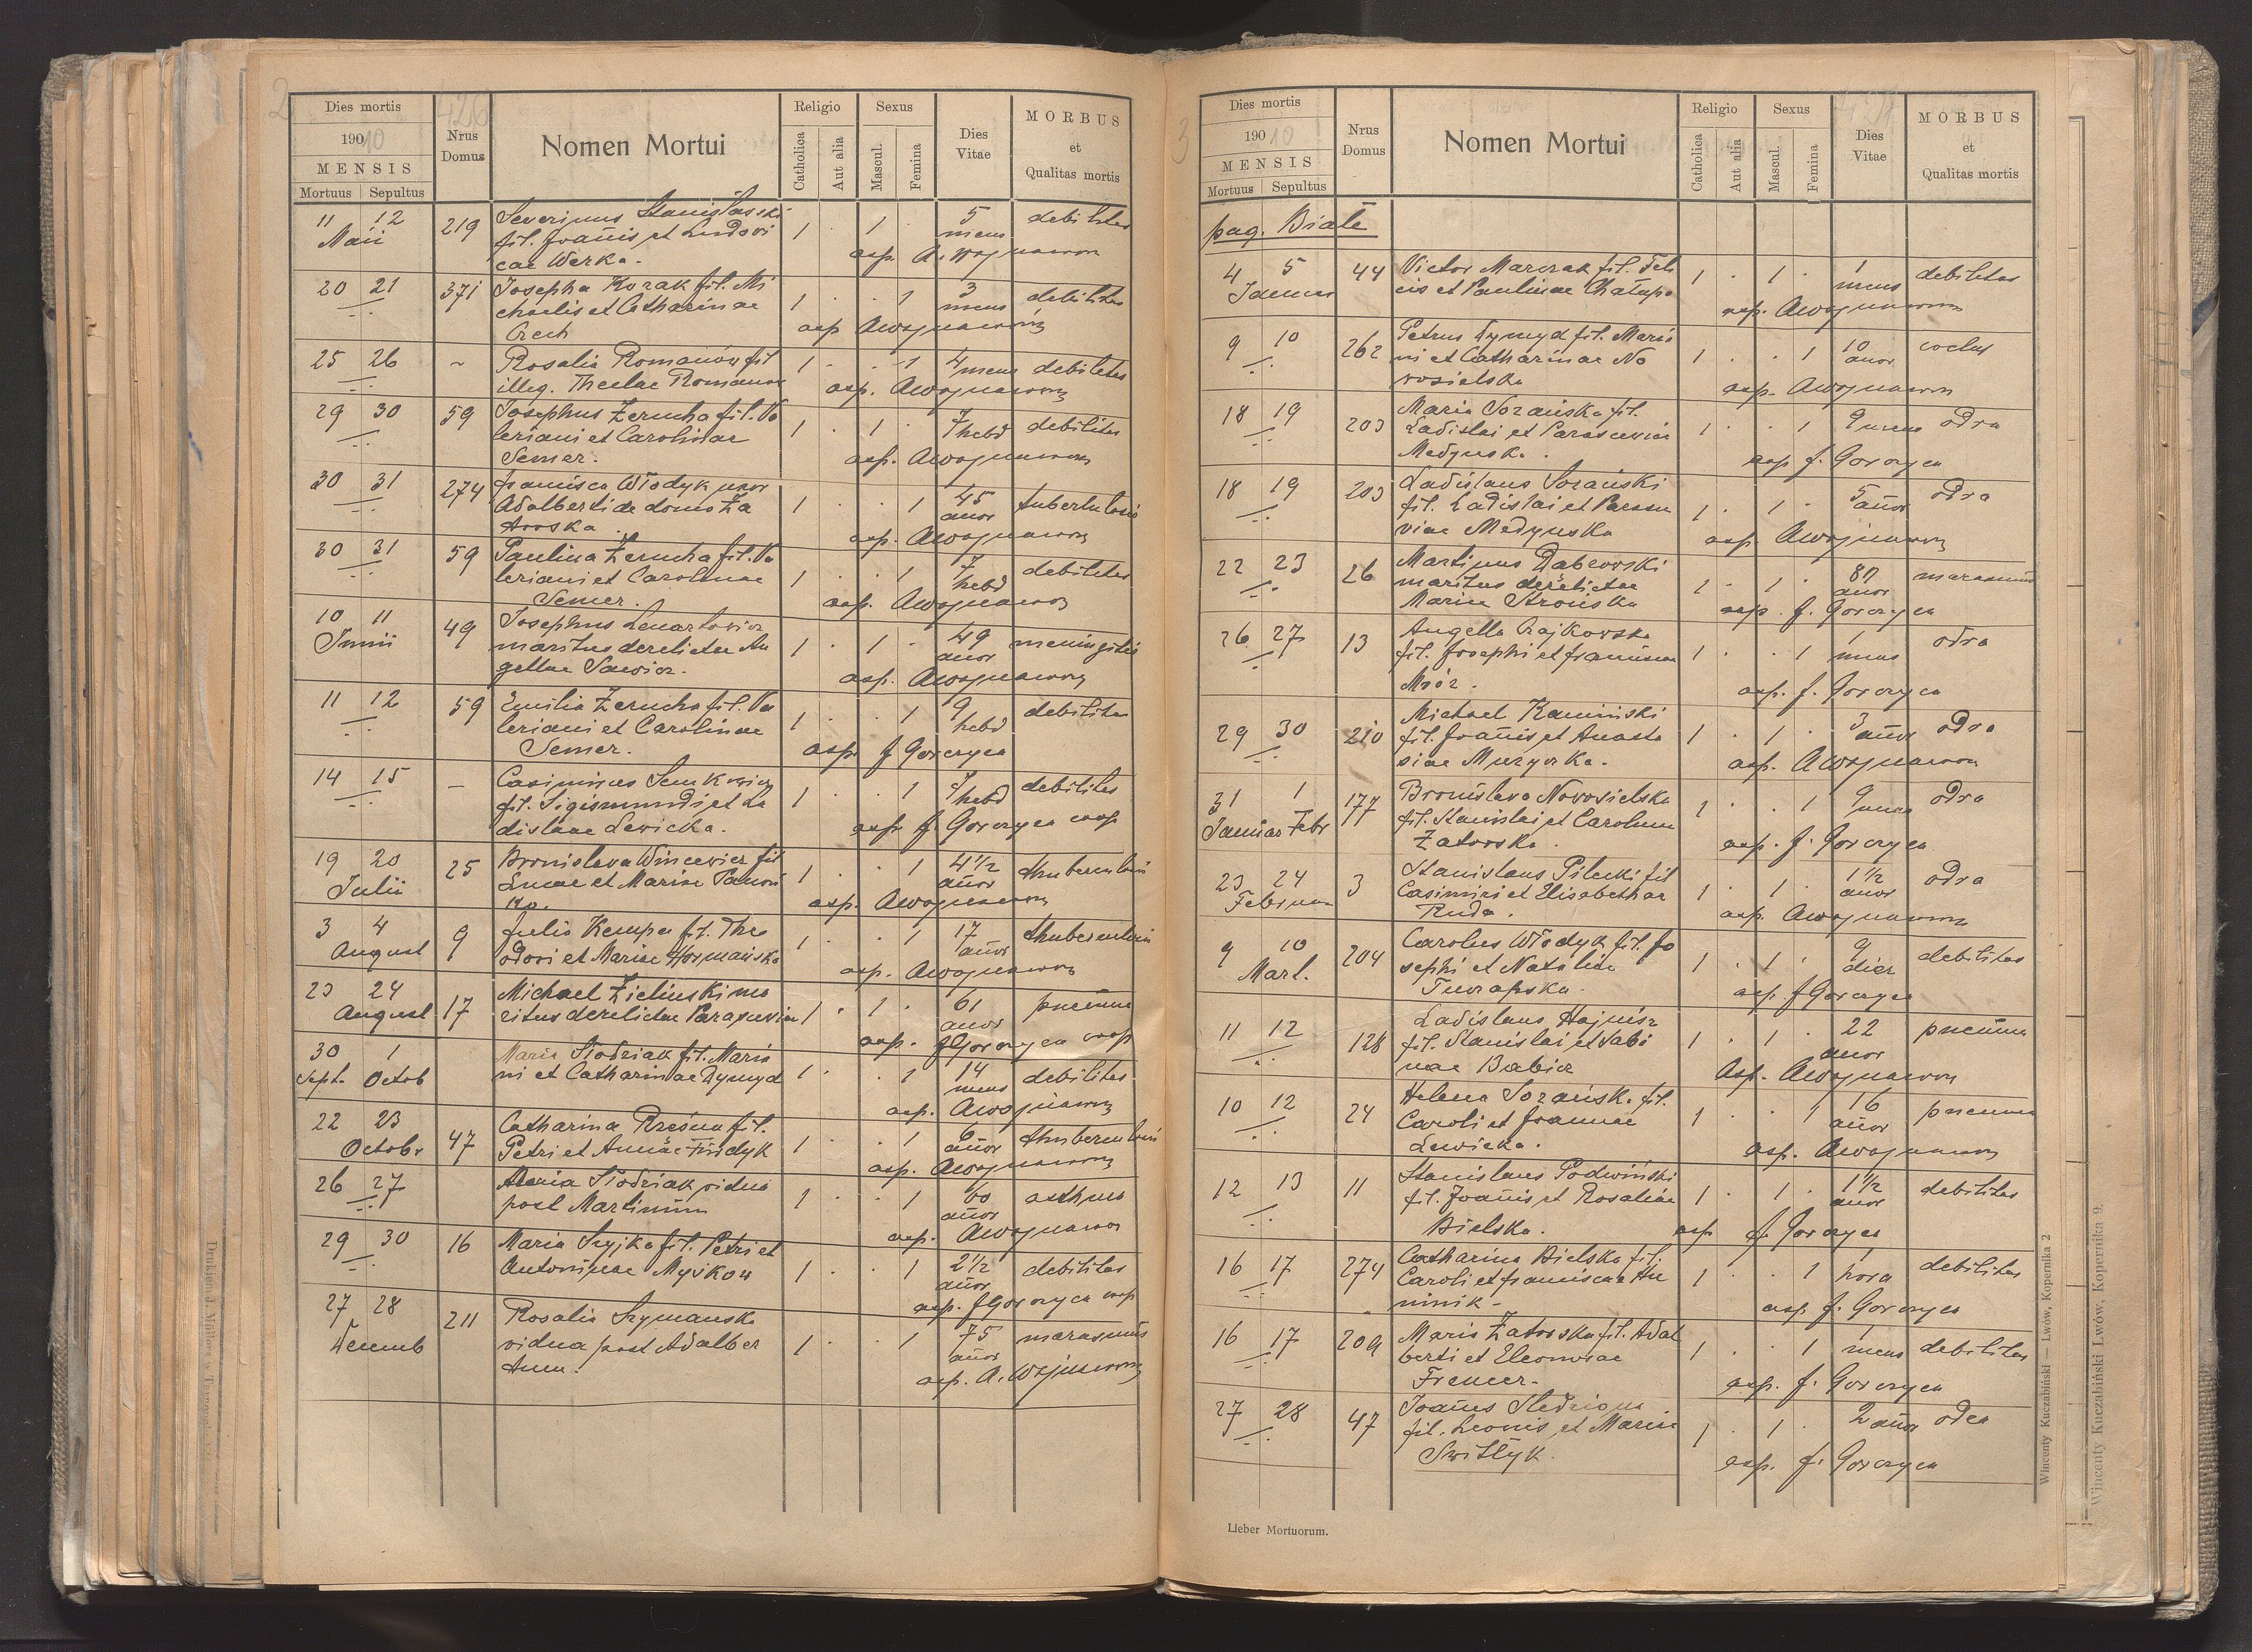 2
426
Dies mortis
19010
MENSIS
Mortuus Sepultus
Nrus Domus
Nomen Mortui
Religio
Catholica
Aut alia
Sexus
Mascul.
Femina
Dies Vitae
MORBUS
et
Qualitas mortis
11 12 219 Severinus Stanisławski 1 . 1 . 5 debilitas
Maii fil. Joannis et Ludovi mens
cae Werka. asp. A. Wojnarow
20 21 371 Josepha Kozak fil. Mi 1 . . 1 3 debilitas
-"- chaelis et Catharinae mens
Orech asp Awojnarow
25 26 ~ Rosalia Romanów fil 1 . . 1 4 mens debilitas
-"- illeg. Theclae Romanow asp. Awojnarow
29 30 59 Josephus Zerucha fil. Va 1 . 1 . 7 hebd debilitas
-"- leriani et Carolinae
Semer. asp. Awojnarow
30 31 274 Francisca Włodyk uxor 1 . . 1 45 tuberkulosis
-"- Adalberti de domo Za anor
torska. asp. Awojnarow
30 31 59 Paulina Zerucha fil. Va 1 . . 1 7 debilitas
-"- leriani et Carolinae hebd
Semer. asp. Awojnarow
10 11 49 Josephus Lenartowicz 1 . 1 . 49 meningitis
Junii maritus derelictae An anor
gellae Sawicz. asp. Awojnarow
11 12 59 Emilia Zerucha fil. Va 1 . . 1 9 debilitas
-"- leriani et Carolinae hebd
Semer. asp. J Goreryca
14 15 - Casimirus 1 . . 1 7 hebd debilitas
-"- fil. Sigismundi et La
dislaae Lewicka. asp J. Goreryca coop
19 20 25 Bronislava Wincewicz fil 1 . . 1 4 1/2
Julii Lucae et Mariae anor
asp. Awojnarow
3 4 9 Julia Kempa fil. The 1 . . 1 17
August odori et Mariae Hormańska anor
asp. Awojnarow
23 24 17 Michael Zieliński ma 1 . 1 . 61 pneuma
August ritus derelictae Parasceviae anor
asp. J Goreryca coop
30 1 Maria Siodziak fil. Mari 1 . . 1 14 debilitas
Sept. Octob ni et Catharinae Dymyd mens
asp. Awojnarow
22 23 47 Catharina fil. 1 . . 1 6
Octobr Petri et Annae anor
asp. Awojnarow
26 27 Maria Siodziak vidua 1 . . 1 60 asthma
-"- post Martinum anor
asp. Awojnarow
29 30 16 Maria Szyjka fil. Petri et 1 . . 1 2 1/2 debilitas
-"- Antoninae Myśków anor
asp. J Goreryca coop
27 28 211 Rosalia Szymanska 1 . . 1 75 marasmus
Decemb vidua post Adalber anor
tum. asp. A. Wojnarow
3
Dies mortis
19010
MENSIS
Mortuus Sepultus
Nrus Domus
Nomen Mortui
Religio
Catholica
Aut alia
Sexus
Mascul.
Femina
Dies Vitae
MORBUS
et
Qualitas mortis
pag. Białe
4 5 44 Victor Marczak fil. Feli 1 . 1 . 1 debilitas
Januar cis et Paulinae Chałupa mens
asp. Awojnarow
9 10 262 Petrus Dymyd fil. Mari 1 . . 1 10
-"- ni et Catharinae No anor
vosielska asp. Awojnarow
18 19 203 Maria Sozańska fil. 1 . . 1 9 mens odra
-"- Ladislai et Parasceviae
Medynska. asp J. Goreryca
18 19 203 Ladislaus Sozański 1 . 1 . 5 odra
-"- fil. Ladislai et Parasce anor
viae Medynska asp Awojnarow
22 23 26 Martinus Dąbrowski 1 . 1 . 87 marasmus
-"- maritus derelictae anor
Mariae Strońska asp. J. Goreryca
26 27 13 Angella Czajkowska 1 . . 1 1 odra
-"- fil. Josephi et Franciscae mens
Mróz. asp. J. Goreryca
29 30 210 Michael Kamiński 1 . 1 . 3 odra
-"- fil. Joannis et Anasta anor
siae Muzyczka. asp. Awojnarow
31 1 177 Bronislava Novosielska 1 . . 1 9 odra
Januar Febr fil. Stanislai et Carolinae mens
Zatorska. asp. J. Goreryca
23 24 3 Stanislaus Pilecki fil 1 . 1 . 1 1/2 odra
Februar Casimiri et Elisabethae anor
Ruda. asp. Awojnarow
9 10 204 Carolus Włodyk fil. Jo 1 . 1 . 9 debilitas
Mart. sephi et Nataliae dier
asp J Goreryca
11 12 128 Ladislaus Hajnisz 1 . 1 . 22 pneuma
-"- fil. Stanislai et Sabi anor
nae Babicz Asp. Awojnarow
10 12 24 Helena Sozańska fil. 1 . . 1 16 pneuma
-"- Caroli et Joannae anor
Lewicka. asp. Awojnarow
12 13 11 Stanislaus Podwiński 1 . 1 . 1 1/2 debilitas
-"- fil. Joannis et Rosaliae anor
Bielska. asp J. Goreryca
16 17 274 Catharina Bielska fil. 1 . . 1 1 debilitas
-"- Caroli et Franciscae Hu hora
minik - asp J. Goreryca
16 17 209 Maria Zatorska fil. Adal 1 . . 1 1 debilitas
-"- berti et Eleonorae mens
Fremer. asp. J. Goreryca
27 28 47 Joannes 1 . 1 . 2 anor odra
-"- fil. Leonis et Mariae
Switłyk. asp. J. Goreryca
Lieber Mortuorum.
Wincenty Kuczabiński — Lwów, Kopernika 2
Wincenty Kuczabiński Lwów, Kopernika 9.